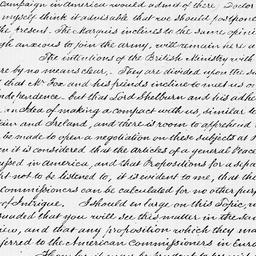 campaign in America would admit of there. Doctor
myself think it advisable that we should postpone
the present. The Marquis inclines to the same opini
gh anxious to join the army, will remain here a
The intentions of the British Ministry with
re by no means clear. They are divided upon the su
that Mr Fox and his friends incline to meet us on
independence. but that Lord Shelburn and his adhe
an Idea of making a compact with us, similar to
tain and Ireland, and there is room to apprehend
be made to open a negotiation on these subjects at
en it is considered that the articles of a general Peace
cussed in America, and that Propositions for a sepa
ght not to be listened to, it is evident to me, that the
Commissioners can be calculated for no other purp
of Intrigue. I should in large on this Topic, n
suaded that you will see this matter in the sam
view, and that any proposition which they ma
ferred to the American Commissioners in Euro